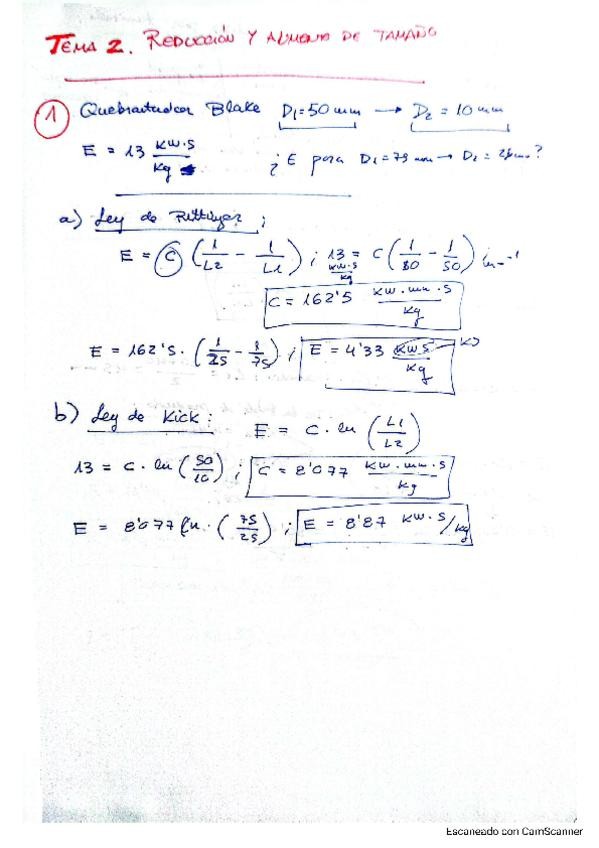 TEMA 2. REDUCCIÓN Y AUMENTO DE TAMAÑO
1 Quebrantador Blake D1=50 mm → D2 = 10 mm
E = 13 KW·S/Kg ¿E para D1=75 mm → D2 = 25 mm?
a) Ley de Rittinger ;
E = C (1/L2 - 1/L1) ; 13 KW·S/Kg = C (1/10 - 1/50) mm-1
C = 162'5 KW·mm·S/Kg
E = 162'5 · (1/25 - 1/75) ; E = 4'33 KWS/Kg KJ
b) Ley de Kick: E = C · ln (L1/L2)
13 = C · ln (50/10) ; C = 8'077 KW·mm·S/Kg
E = 8'077 ln · (75/25) ; E = 8'87 KW·S/Kg
Escaneado con CamScanner